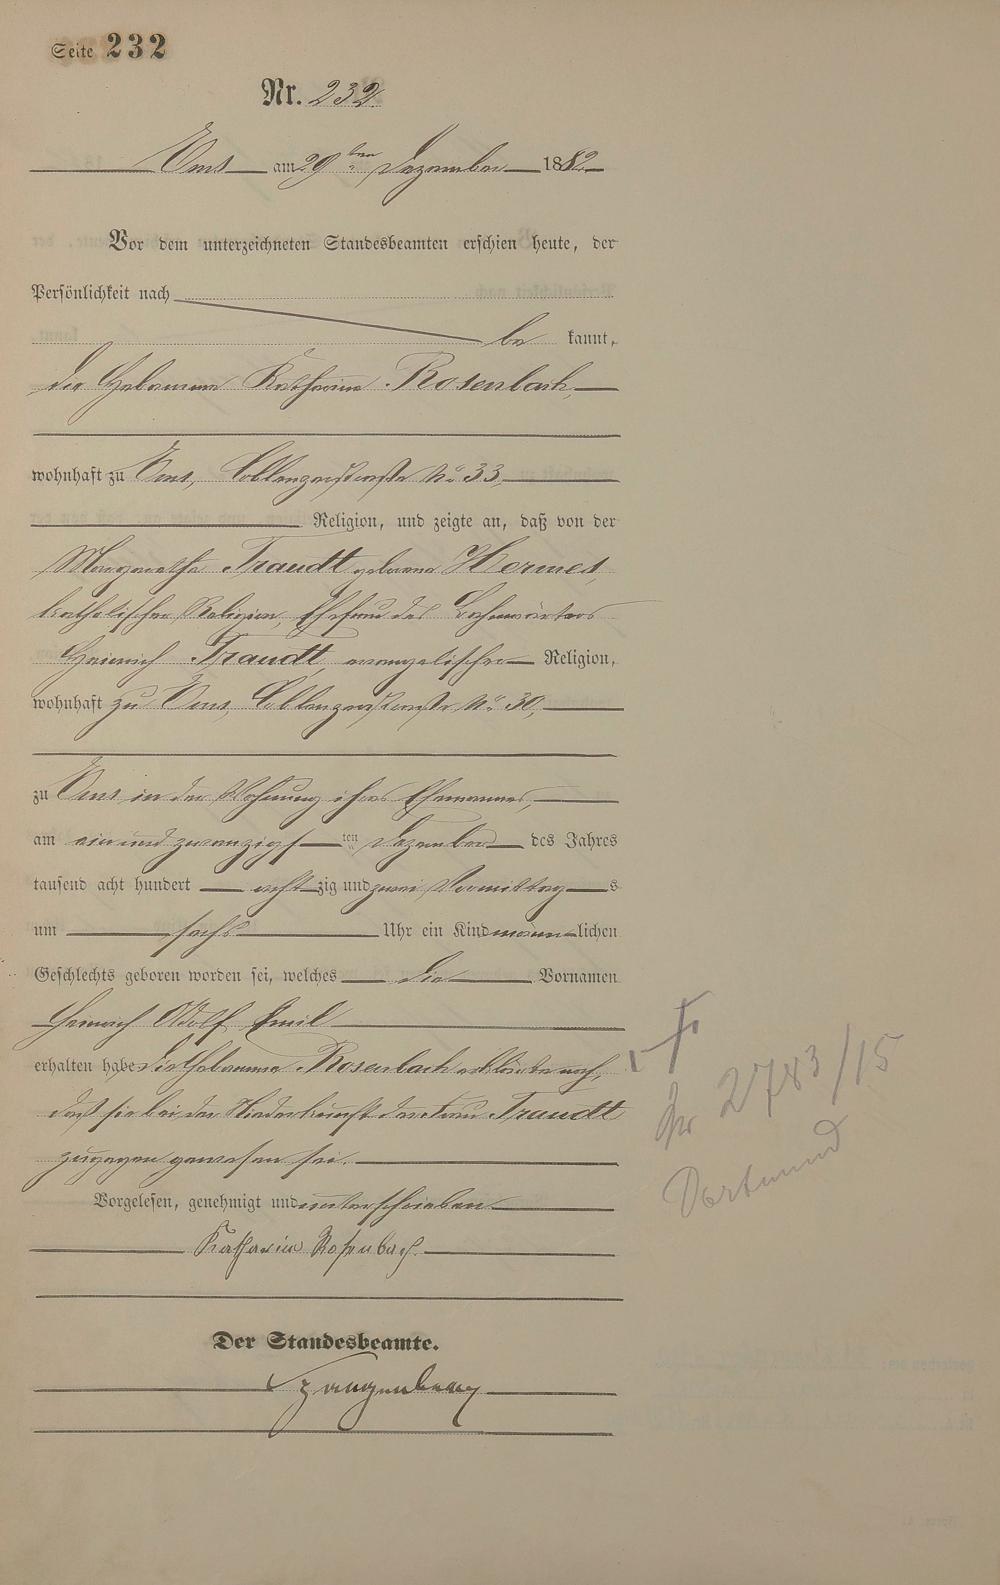 Seite 232
Nr. 232.
Ems am 29ten Dezember 1882
Vor dem unterzeichneten Standesbeamten erschien heute, der
Persönlichkeit nach
be kannt,
die Hebamme Katharina Rosenbach,
wohnhaft zu Ems, Coblenzerstraße No 33,
Religion, und zeigte an, daß von der
Margaretha Traudt geborene Hermes,
katholischer Religion, Ehefrau des Bahnwärters
Heinrich Traudt, evangelischer Religion,
wohnhaft zu Ems, Coblenzerstraße No 30,
zu Ems in der Wohnung ihres Ehemannes,
am ein und zwanzigsten Dezember des Jahres
tausend acht hundert achtzig und zwei Vormittags
um sechs Uhr ein Kind männlichen
Geschlechts geboren worden sei, welches die Vornamen
Heinrich Adolf Emil
erhalten habe. Die Hebamme Rosenbach erklärte noch,
daß sie bei der Niederkunft der Frau Traudt
zugegen gewesen sei.
Vorgelesen, genehmigt und unterschrieben
Katharina Rosenbach.
Der Standesbeamte.
2783/15
Dortmund